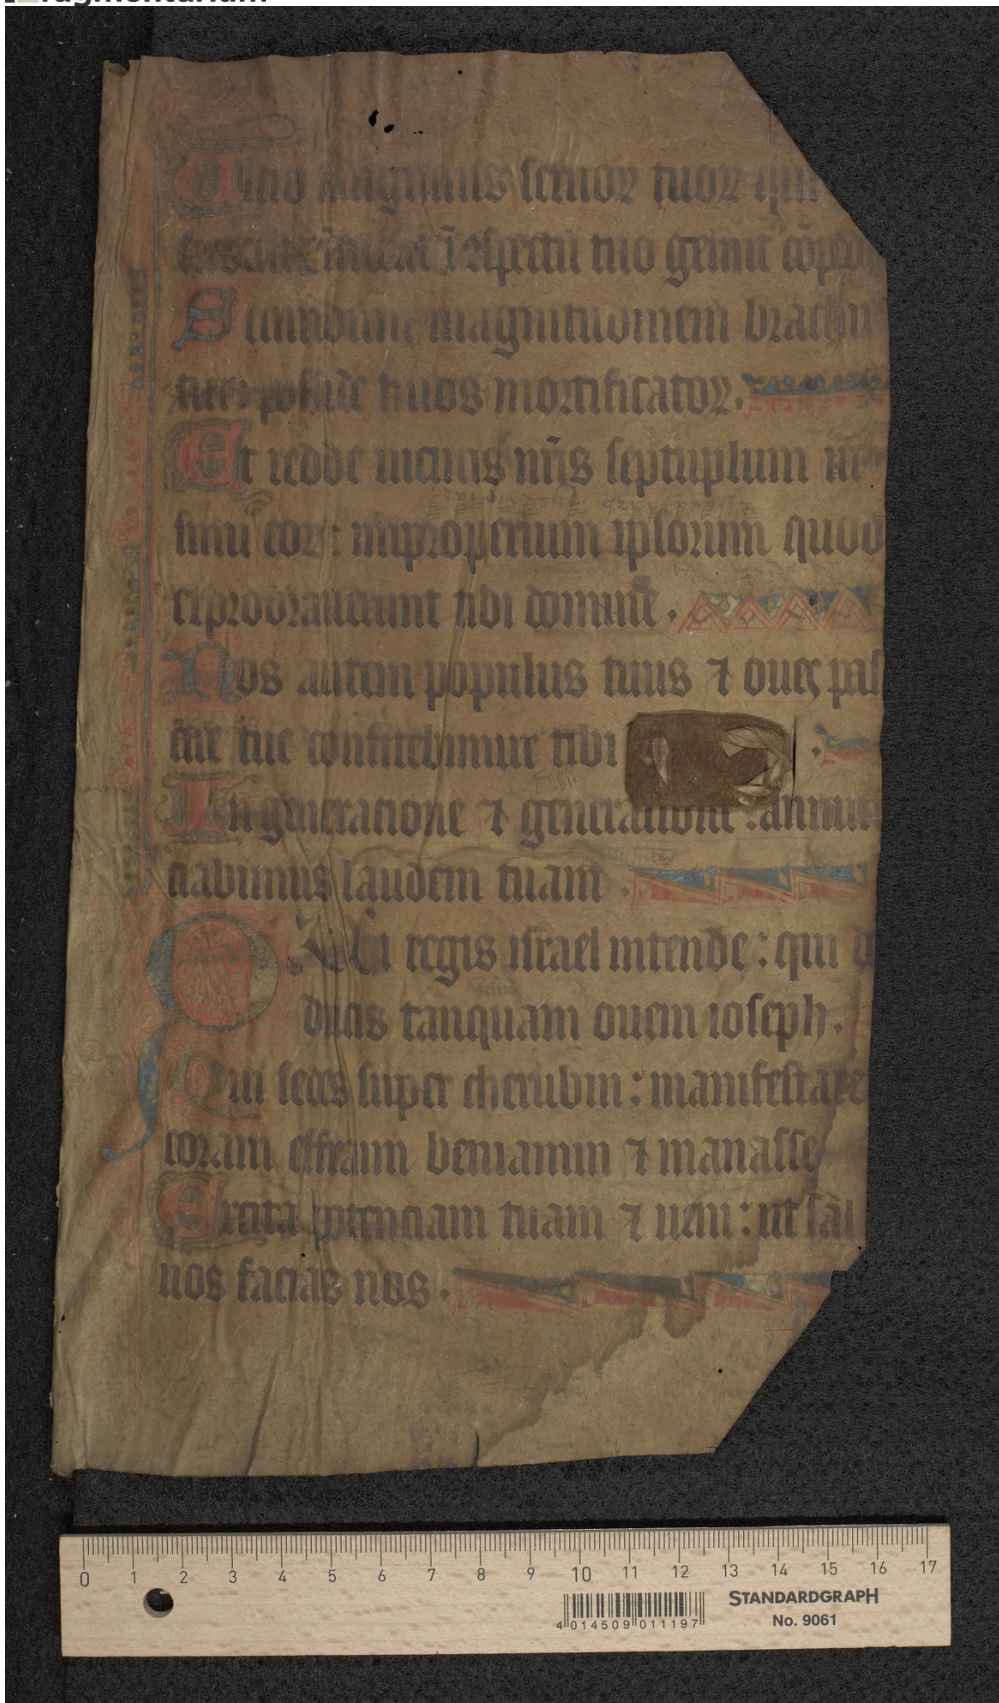 ragmentarium
Ultio sanguinis seruoꝝ tuoꝝ qui
introeat ī ↄspectu tuo gemit᷒ cōpedi
Secundum magnitudinem brachii
tui: posside filios mortificatoꝝ.
Et redde uicinis nr̄is septuplum in
sinu eoꝝ: improperium ipsorum quod
exprobrauerunt tibi domine.
Nos autem populus tuus ⁊ oues pas
cue tue confitebimur tibi
In generatione ⁊ generatione: annun
ciabimus laudem tuam.
Qui regis israel intende: qui de
ducis tanquam ouem ioseph.
Qui sedes super cherubin: manifestare
coram effraim beniamin ⁊ manasse
Excita potenciam tuam ⁊ ueni: ut sal
uos facias nos.
0 1 2 3 4 5 6 7 8 9 10 11 12 13 14 15 16 17
4 014509 011197
STANDARDGRAPH
No. 9061